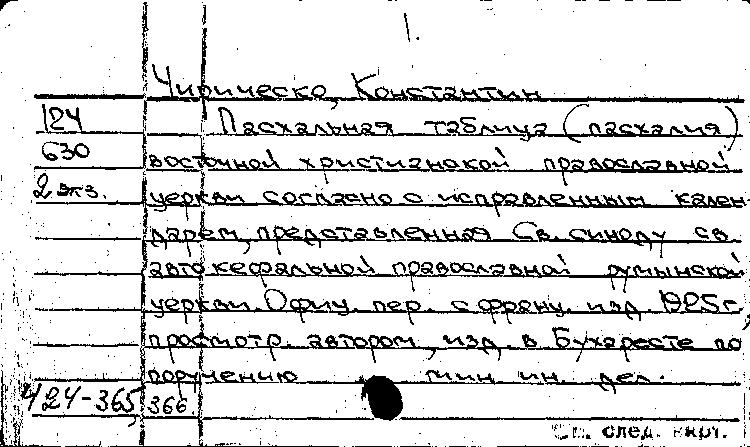 1.
Чирическо, Константин
124 Пасхальная таблица (пасхалия)
630 восточной христианской православной
2 экз. церкви согласно с исправленным кален-
дарем, представленная Св. синоду св.
автокефальной православной румынской
церкви. Офиц. пер. с франц. изд. 1925 г.,
просмотр. автором, изд. в Бухаресте по
поручению мин. ин. дел.
424-365, 366.
См. след. карт.